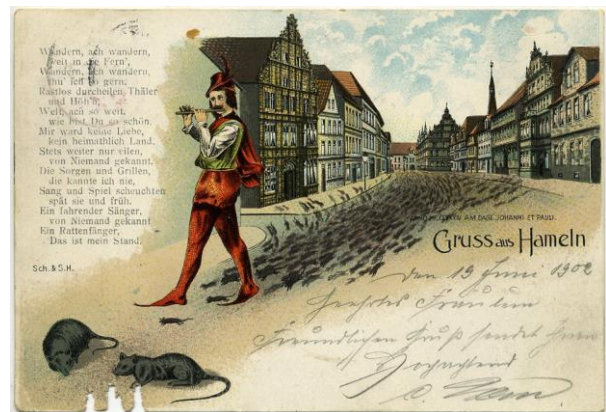 Wandern, ach wandern,
weit in die Fern',
Wandern, ach wandern,
thu' ich so gern.
Rastlos durcheilen Thäler
und Höh'n,
Welt, ach so weit,
wie bist Du so schön.
Mir ward keine Liebe,
kein heimathlich Land,
Stets weiter nur eilen,
von Niemand gekannt.
Die Sorgen und Grillen,
die kannte ich nie,
Sang und Spiel scheuchten
spät sie und früh.
Ein fahrender Sänger,
von Niemand gekannt
Ein Rattenfänger,
Das ist mein Stand.
Sch. & S.H.
AM DAGE JOHANNI ET PAULI.
Gruss aus Hameln
den 19 Juni 1902
Geehrtes Fräulein
Freundlichen Gruß sendet Ihnen
Hochachtend